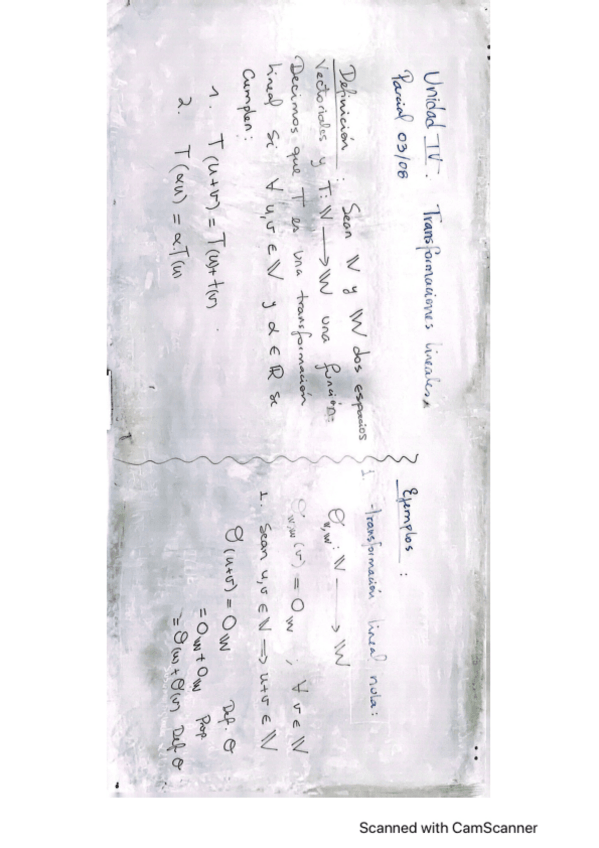 Unidad IV. Transformaciones lineales
Parcial 03/06
Definición: Sean V y W dos espacios
Vectoriales y T: V → W una función.
Decimos que T es una transformación
lineal si ∀ u,v ∈ V y α ∈ ℝ se
Cumplen:
1. T(u+v) = T(u)+T(v).
2. T(αu) = αT(u)
Ejemplos:
1. Transformación lineal nula:
θ_{V,W}: V → W
θ_{V,W}(v) = 0_W ; ∀ v ∈ V
1. Sean u,v ∈ V → u+v ∈ V
θ(u+v) = 0_W Def. θ
= 0_W + 0_W Prop
= θ(u)+θ(v) Def θ
Scanned with CamScanner